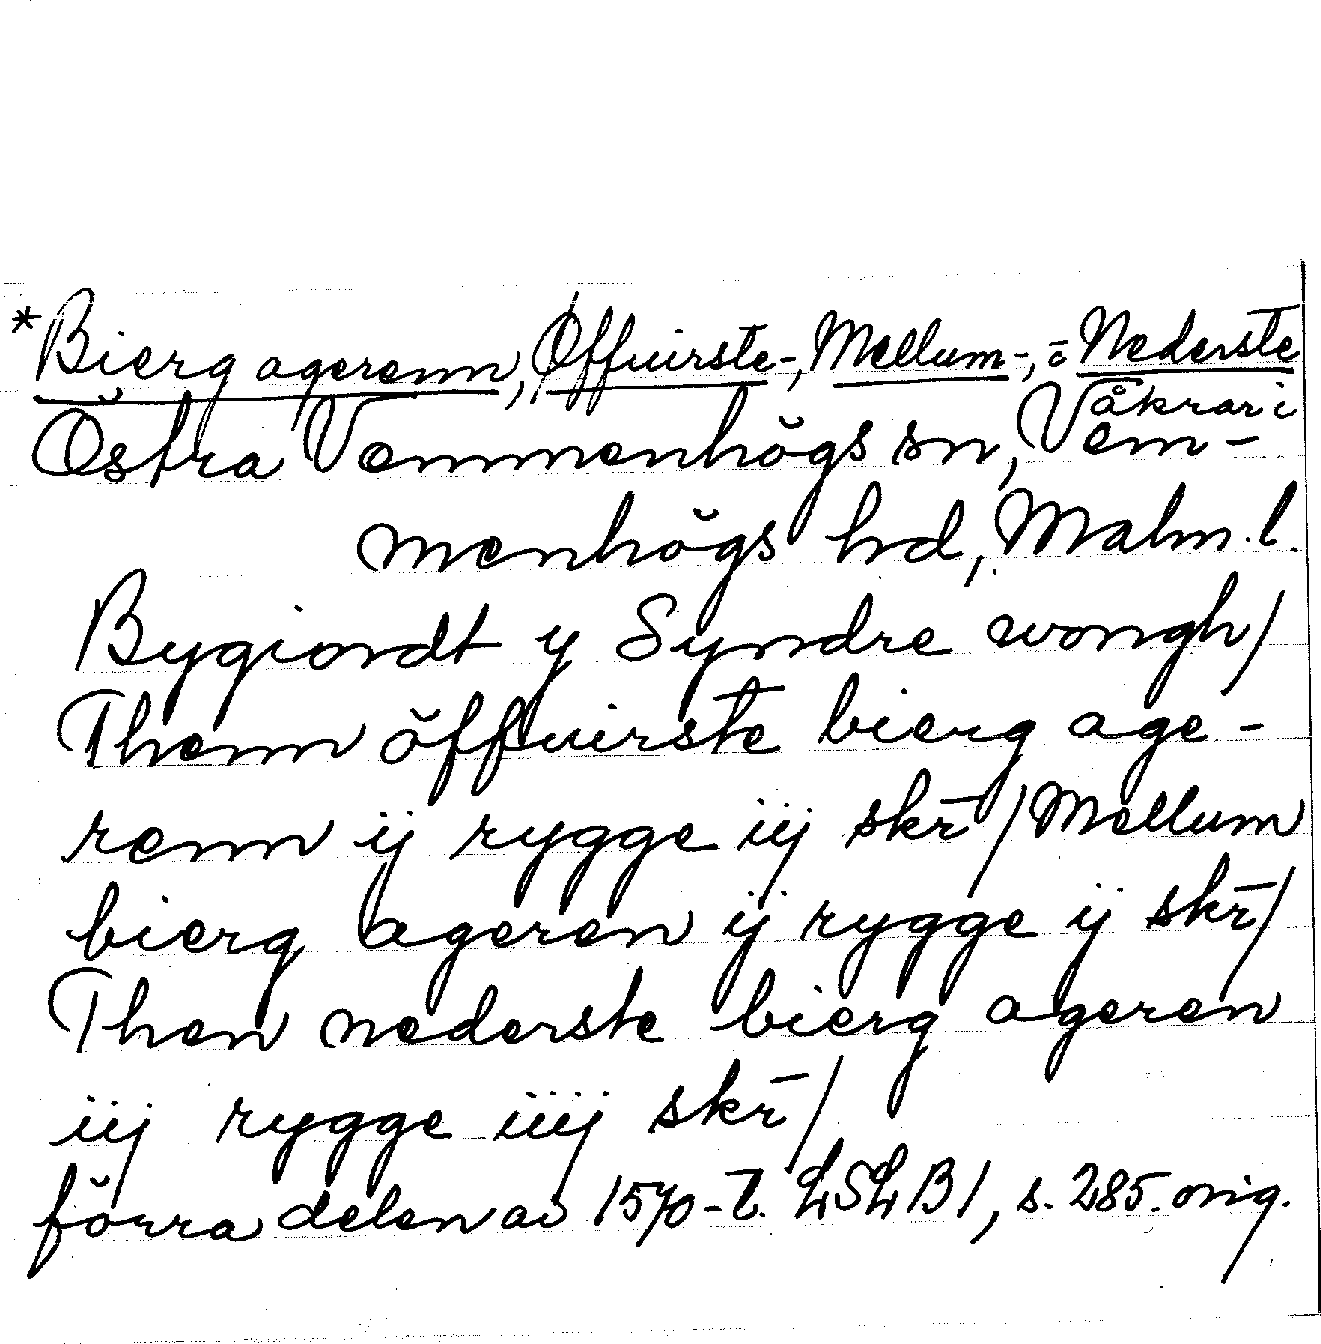 *Bierg agerenn, Øffuirste-, Mellum-, o Nederste
åkrar i
Östra Vemmenhögs sn, Vem-
menhögs hd, Malm. l.
Bygiordt y Syndre wongh/
Thenn öffuirste bierg age-
renn ij rygge iij skr̄/ Mellum
bierg ageren ij rygge ij skr̄/
Then nederste bierg ageren
iij rygge iiij skr̄/
förra delen av 1570-t. LSLB1, s. 285. orig.